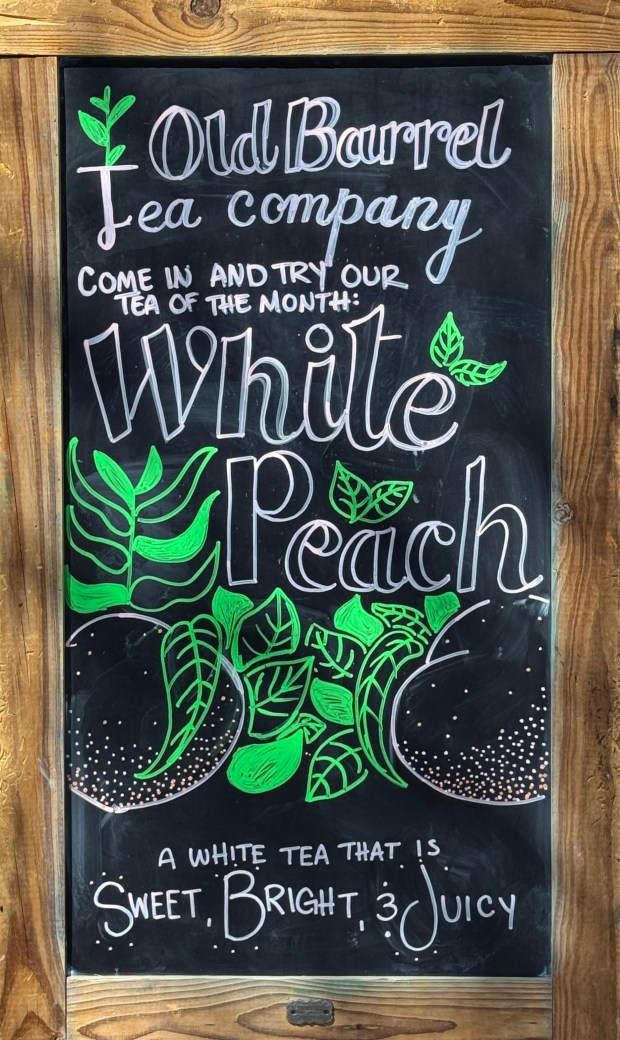 Old Barrel
Tea company
COME IN AND TRY OUR
TEA OF THE MONTH:
White
Peach
A WHITE TEA THAT IS
SWEET, BRIGHT, & JUICY